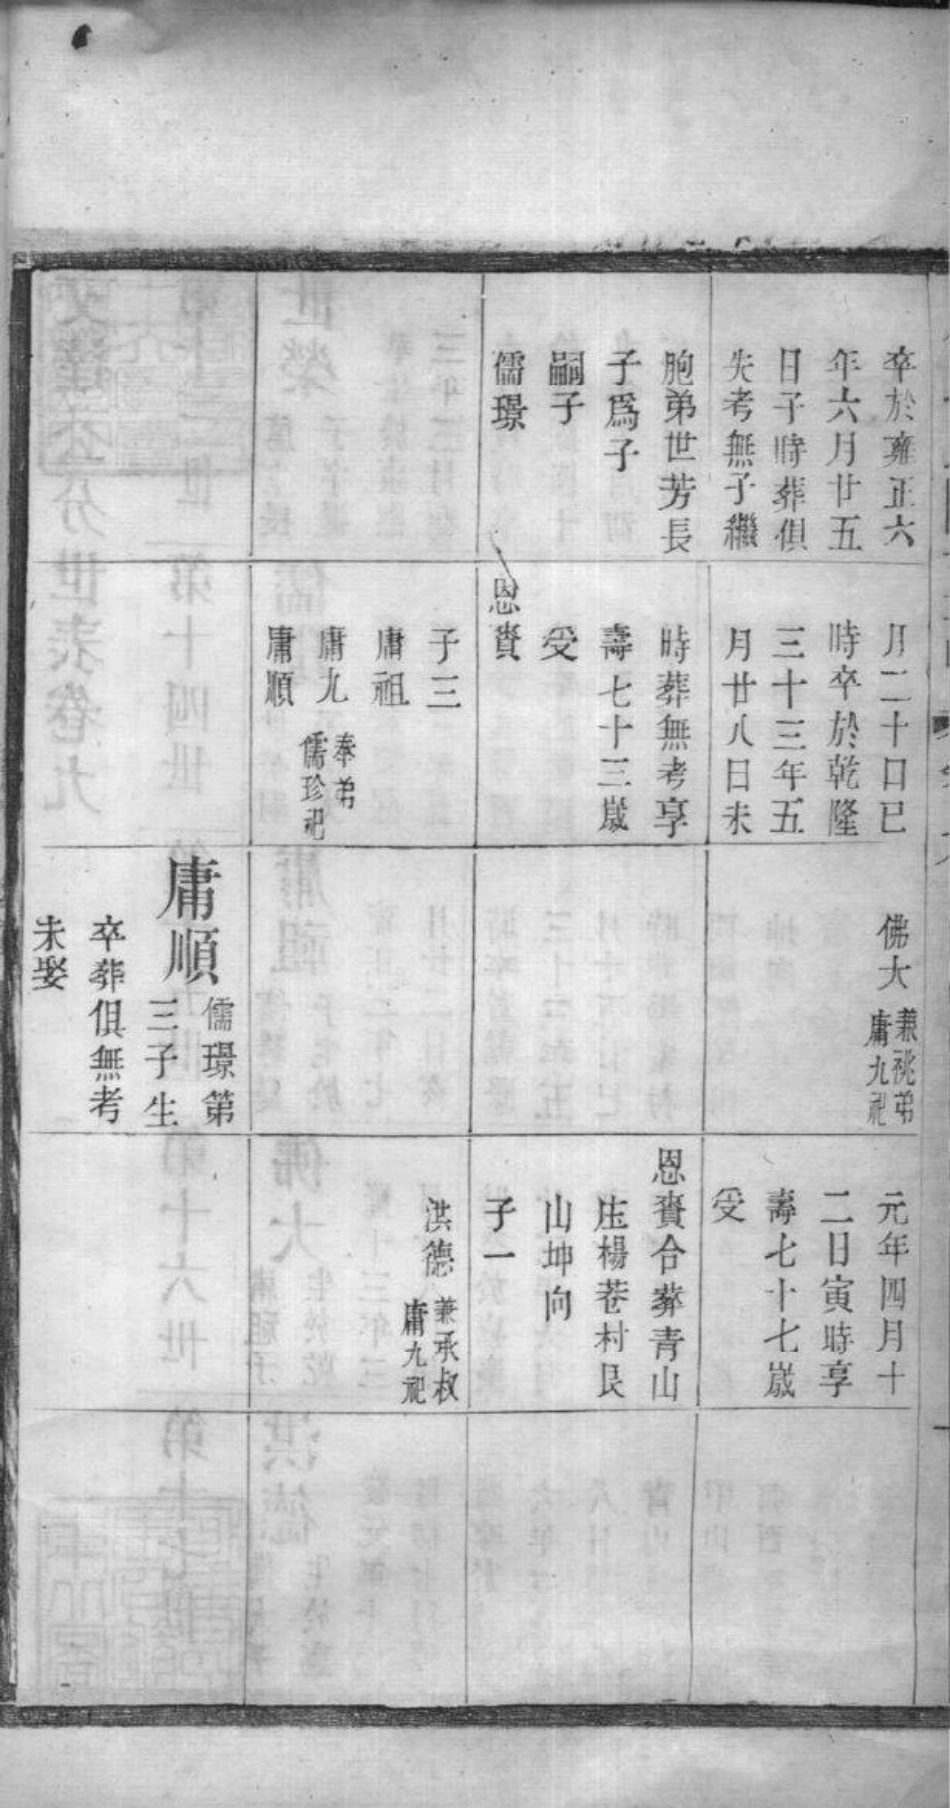 卒於雍正六
年六月廿五
日子時葬俱
失考無子繼
胞弟世芳長
子爲子
嗣子
儒璟
月二十日巳
時卒於乾隆
三十三年五
月廿八日未
時葬無考享
壽七十三歲
受
恩賚
子三
庸祖
庸九 奉弟儒珍祀
庸順
佛大 兼祧弟庸九祀
庸順 儒璟第
三子生
卒葬俱無考
未娶
元年四月十
二日寅時享
壽七十七歲
受
恩賚合葬青山
庄楊巷村艮
山坤向
子一
洪德 兼承叔庸九祀